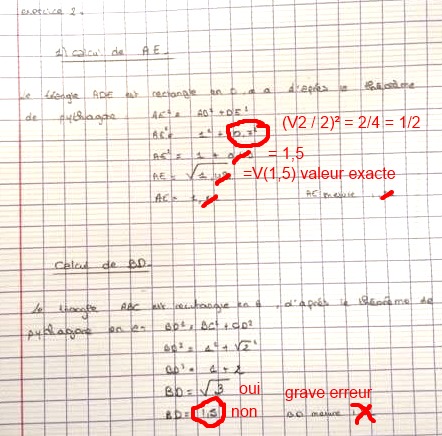 exercice 2.
1) Calcul de AE.
Le triangle ADE est rectangle en D, on a d'après le théorème
de pythagore : AE² = AD² + DE²
AE² = 1² + 0,7² (V2 / 2)² = 2/4 = 1/2
AE² = 1 + = 1,5
AE = √1,49 =V(1,5) valeur exacte
AE = AE mesure
Calcul de BD.
Le triangle ABC est rectangle en B, d'après le théorème de
pythagore on a BD² = BC² + CD²
BD² = 1² + √2²
BD² = 1 + 2
BD = √3 oui grave erreur
BD = 1,5 non BD mesure